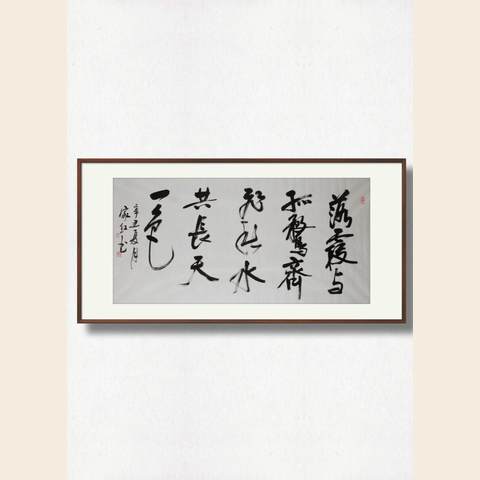 落霞与
孤鹜齐
飞秋水
共长天
一色
辛丑夏月
家红书